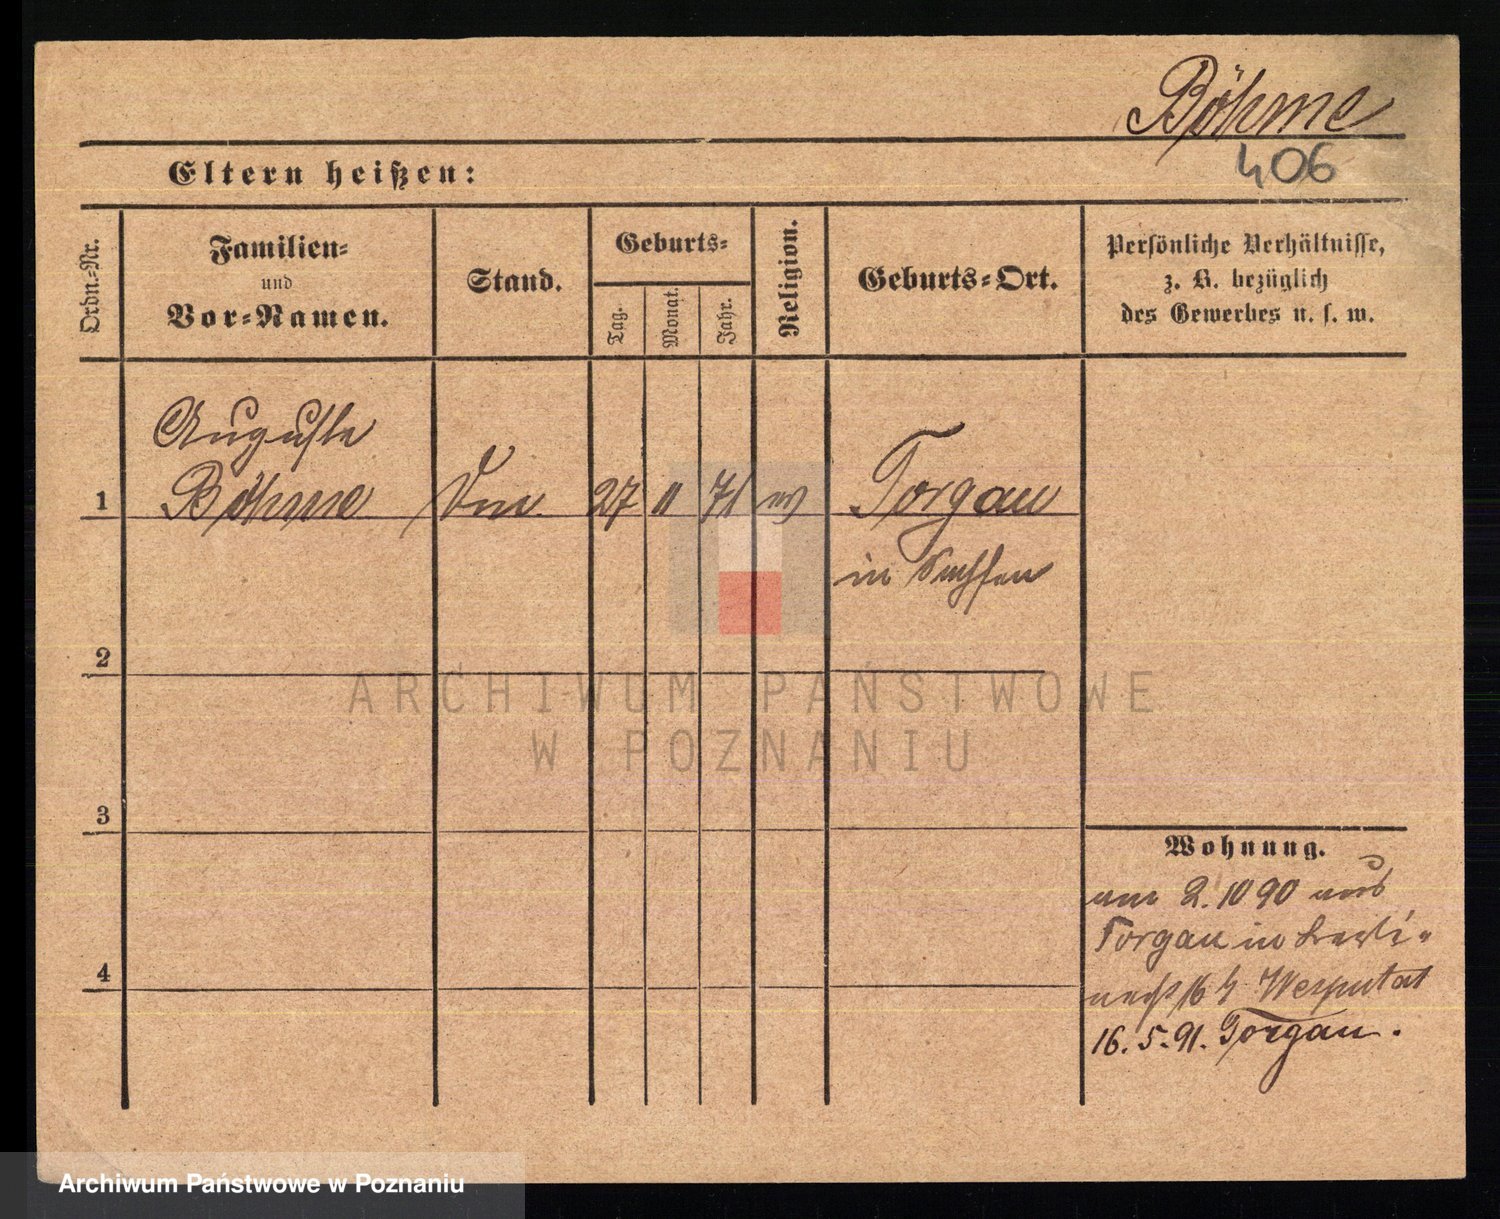 Böhme
406
Eltern heißen:
Ordn.-Nr.
Familien-
und
Vor-Namen.
Stand.
Geburts-
Tag.
Monat.
Jahr.
Religion.
Geburts-Ort.
Persönliche Verhältnisse,
z. B. bezüglich
des Gewerbes u. s. w.
Auguste
1 Böhme 27 11 71 Torgau
in Sachsen
2
ARCHIWUM PAŃSTWOWE
W POZNANIU
3
Wohnung.
am 2. 10 90 aus
Torgau in
4
16. 5. 91. Torgau.
Archiwum Państwowe w Poznaniu